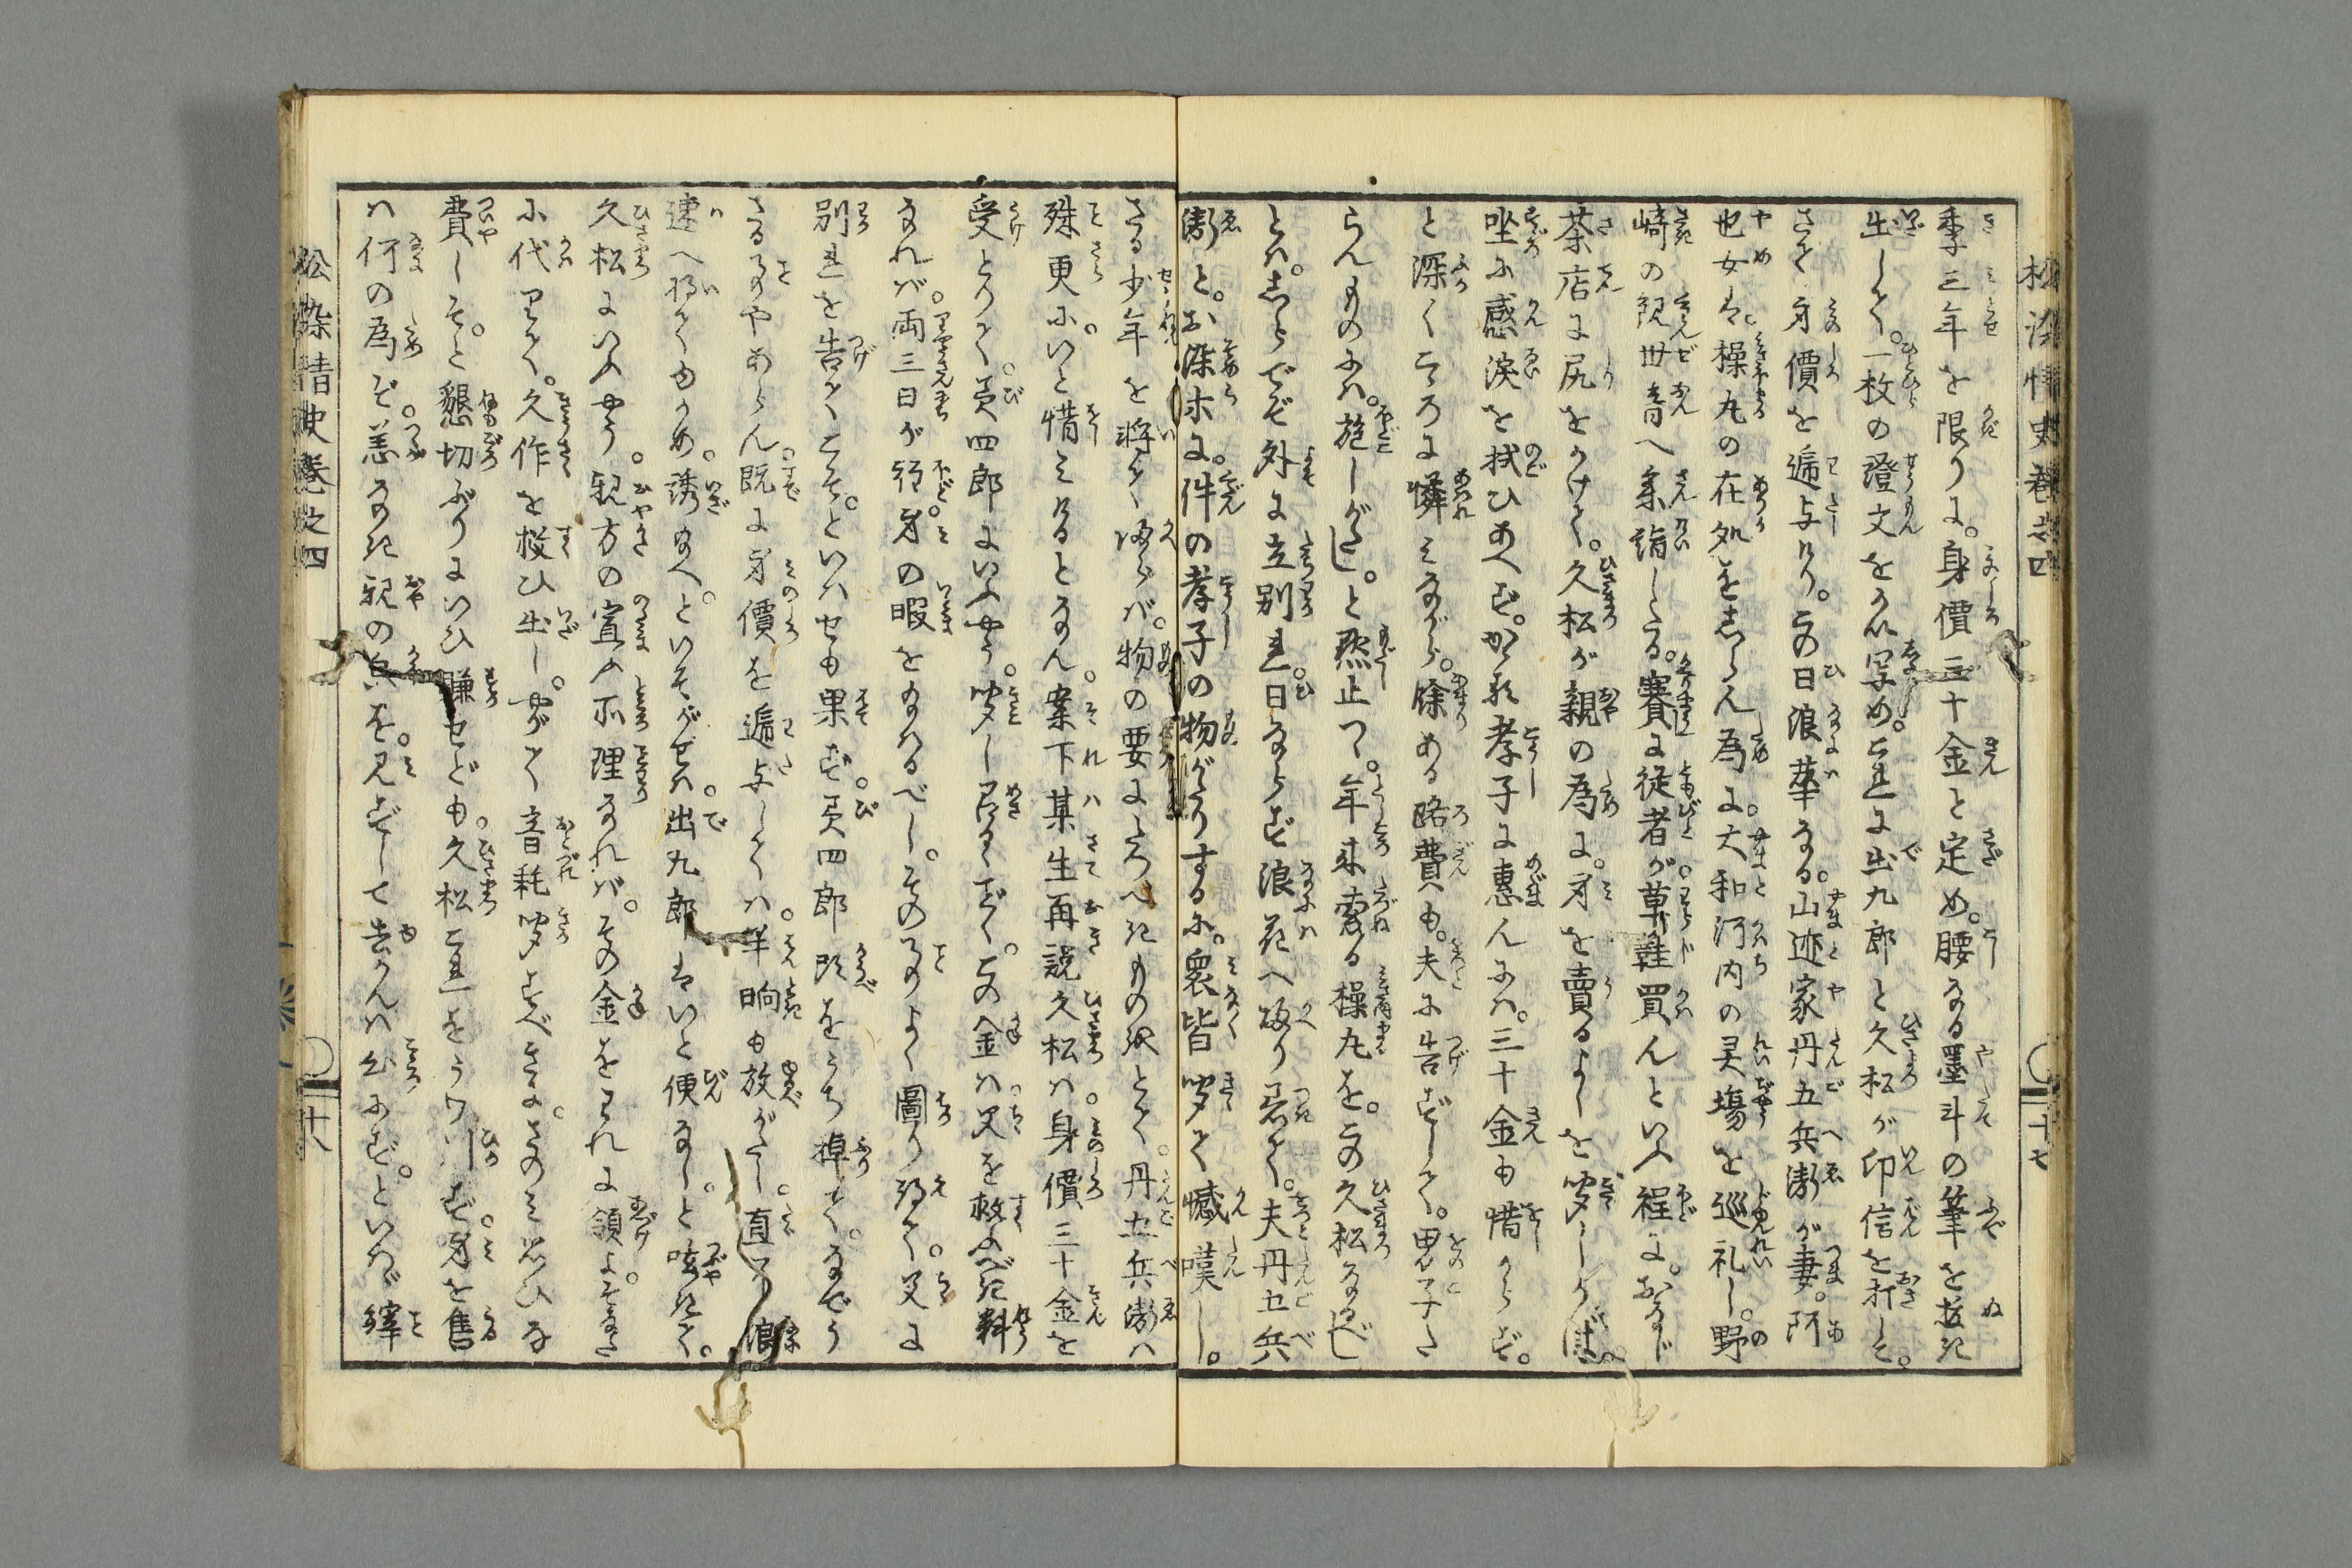 松染情史巻之四 十七
季三年を限りに。身價三十金と定め。腰なる墨斗の筆を抜き
出して。一枚の證文をかい写め。これに出九郎と久松が印信を打して。
さて身價を遞与けり。この日浪華なる。山家屋丹五兵衛が妻。阿
也女は。操丸の在処をしらん為に。大和河内の灵場を巡礼し。野
崎の観世音へ参詣したる。賽に従者が草鞋買んといふ程に。おなじ
茶店に尻をかけて。久松が親の為に。身を賣るよしを聞しかば。
坐に感涙を拭ひあへず。かゝる孝子に惠んには。三十金も惜からず。
と深くこゝろに憐みながら。餘ある路費も。夫に告ずして。男子た
らんものには。施しがたし。と黙止つ。年来索る操丸を。この久松なるべし
とは。しらでぞ外に立別れ。日ならず浪花へ皈り着て。夫丹五兵
衛と。お染等に。件の孝子の物がたりするに。衆皆聞て感嘆し。
さる少年を将て皈らば。物の要にたつべきものぞとて。丹五兵衛は
殊更に。いと惜みけるとなん。案下某生再説久松は。身價三十金を
受とりて。荑四郎にいふやう。聞し召るゝごとく。この金は父を救ふべき料
なれば。両三日が程。身の暇を給はるべし。その事よく圖り得て。父に
別れを告てこそ。といはせも果ず。荑四郎頭をうち掉て。なでう
さる事やあらん。既に身價を遞与しては。半晌も放がたし。直に浪
速へ将てゆかめ。誘給へ。といそがせば。出九郎はいと便なし。と呟きて。
久松にいふやう。親方の宣ふ所理なれば。その金をわれに領よ。そなた
に代りて。久作を救ひ出し。やがて音耗聞すべきに。さのみ思ひな
費しそ。と懇切ぶりにいひ賺せども。久松これをうけ引ず。身を售る
は何の為ぞ。恙なき親の皃を。見ずして去かんは心にあらず。といへば繹
松染情史巻之四 十八